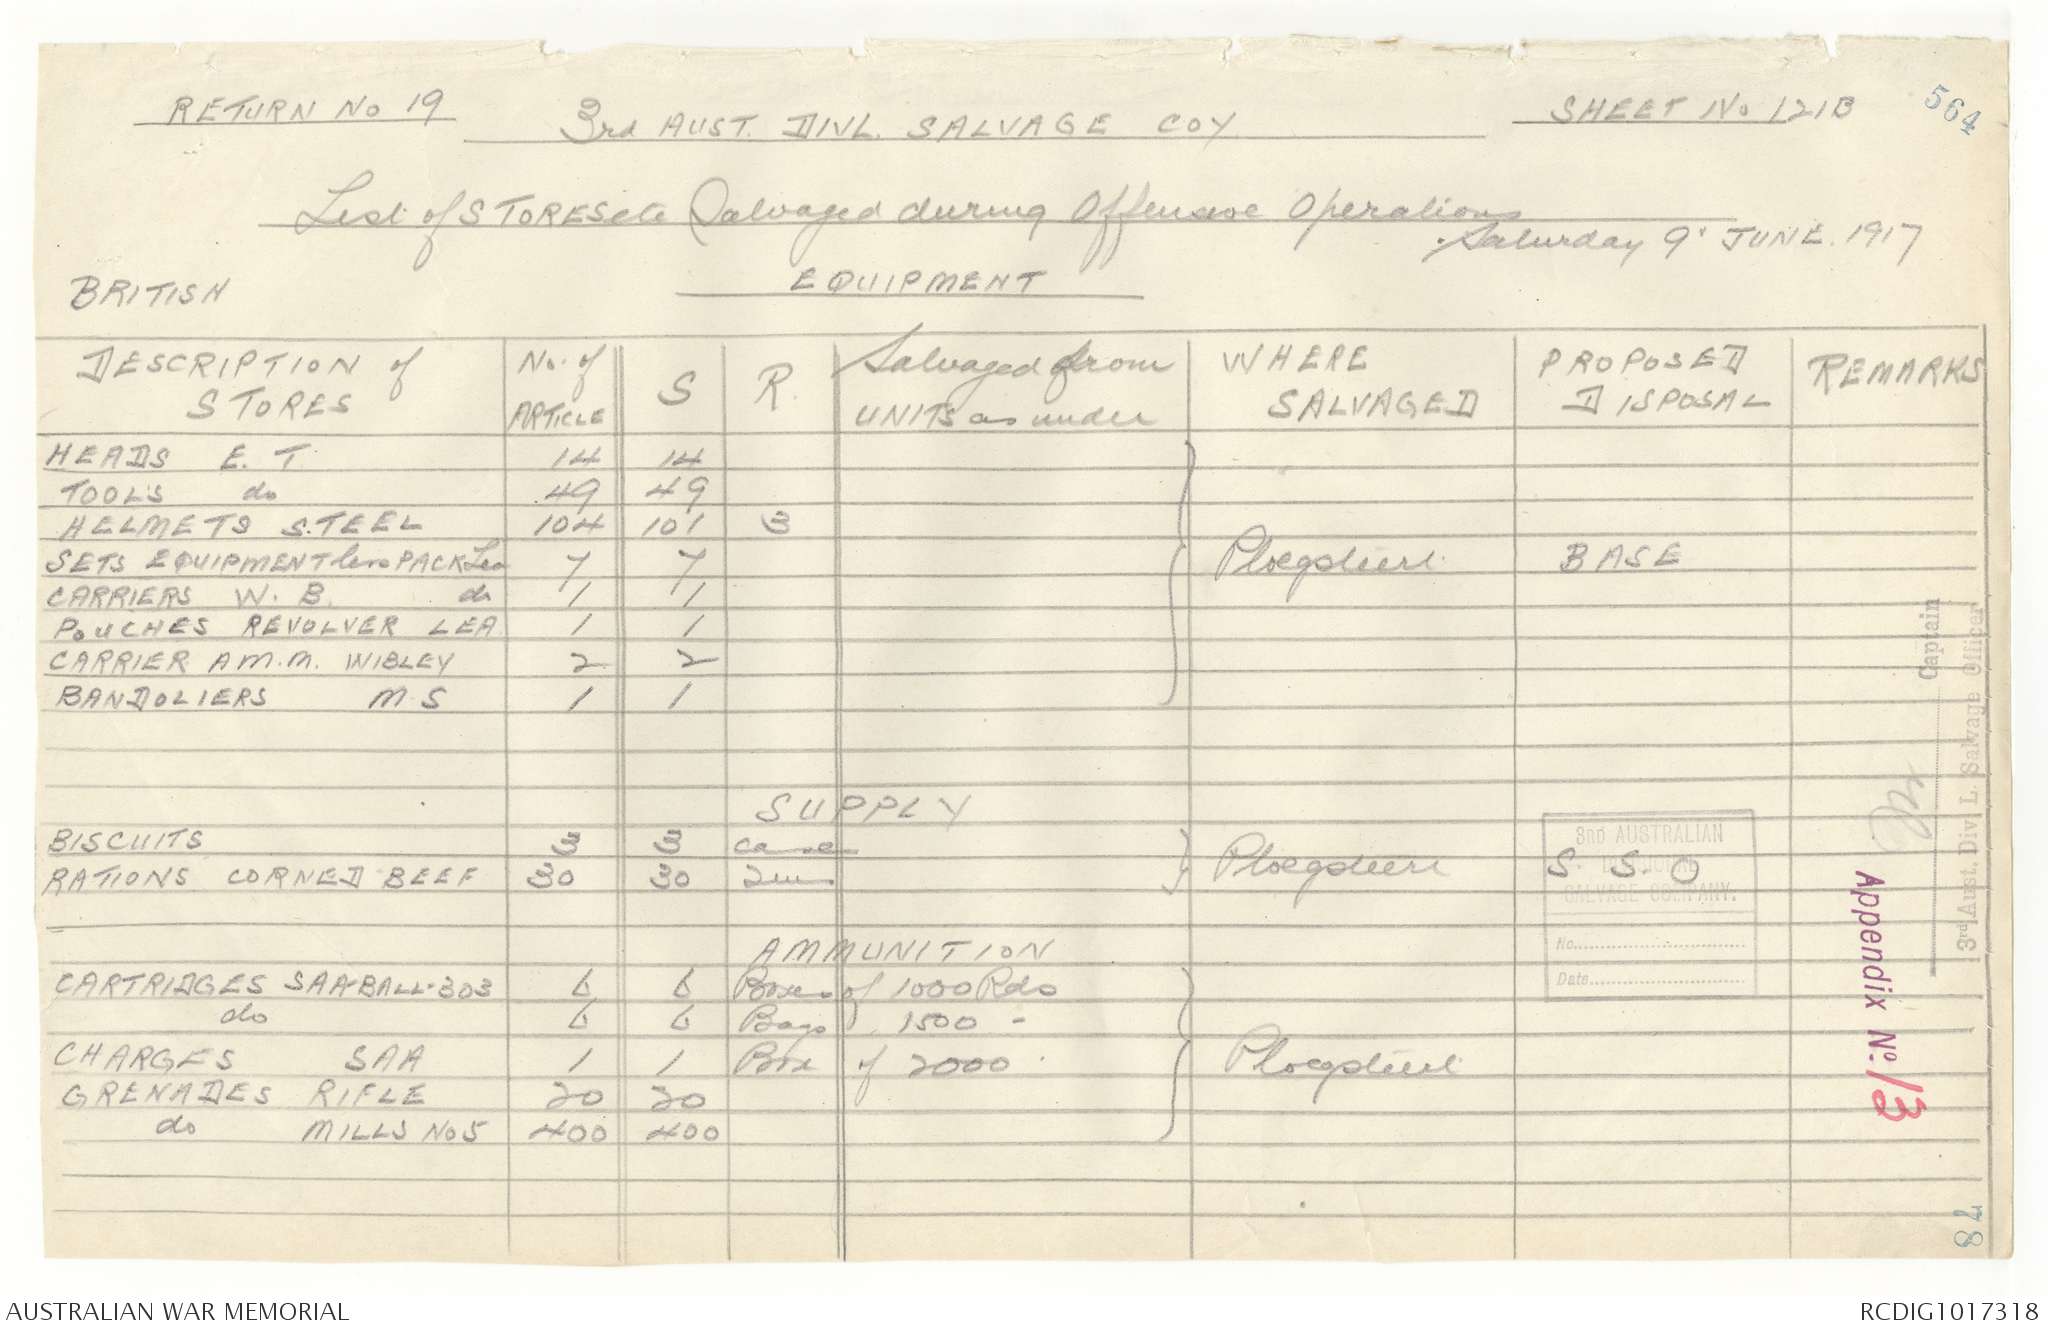 RETURN No 19
3rd AUST. DIVL. SALVAGE COY
SHEET No 121B
564
List of STORES etc Salvaged during Offensive Operations
Saturday 9' JUNE. 1917
BRITISH
EQUIPMENT
DESCRIPTION of STORES | No. of ARTICLE | S | R. | Salvaged from UNITS as under | WHERE SALVAGED | PROPOSED DISPOSAL | REMARKS
HEADS E. T. 14 14
TOOLS do 49 49
HELMETS STEEL 104 101 3
SETS EQUIPMENT less PACK Lea 7 7 Ploegsteert BASE
CARRIERS W. B. do 1 1
POUCHES REVOLVER LEA 1 1
CARRIER AM.M. WIBLEY 2 2
BANDOLIERS M S 1 1
SUPPLY
BISCUITS 3 3 cases
RATIONS CORNED BEEF 30 30 Ploegsteert S. S. O
AMMUNITION
CARTRIDGES SAA-BALL-303 6 6 Boxes of 1000 Rds
do 6 6 Bags 1500 -
CHARGES SAA 1 1 Box of 2000 Ploegsteert
GRENADES RIFLE 20 20
do MILLS No 5 400 400
3RD AUSTRALIAN
DIVISIONAL
SALVAGE COMPANY.
No.
Date
Captain
3rd Aust. Div. L. Salvage Officer
Appendix No. 13
78
AUSTRALIAN WAR MEMORIAL
RCDIG1017318